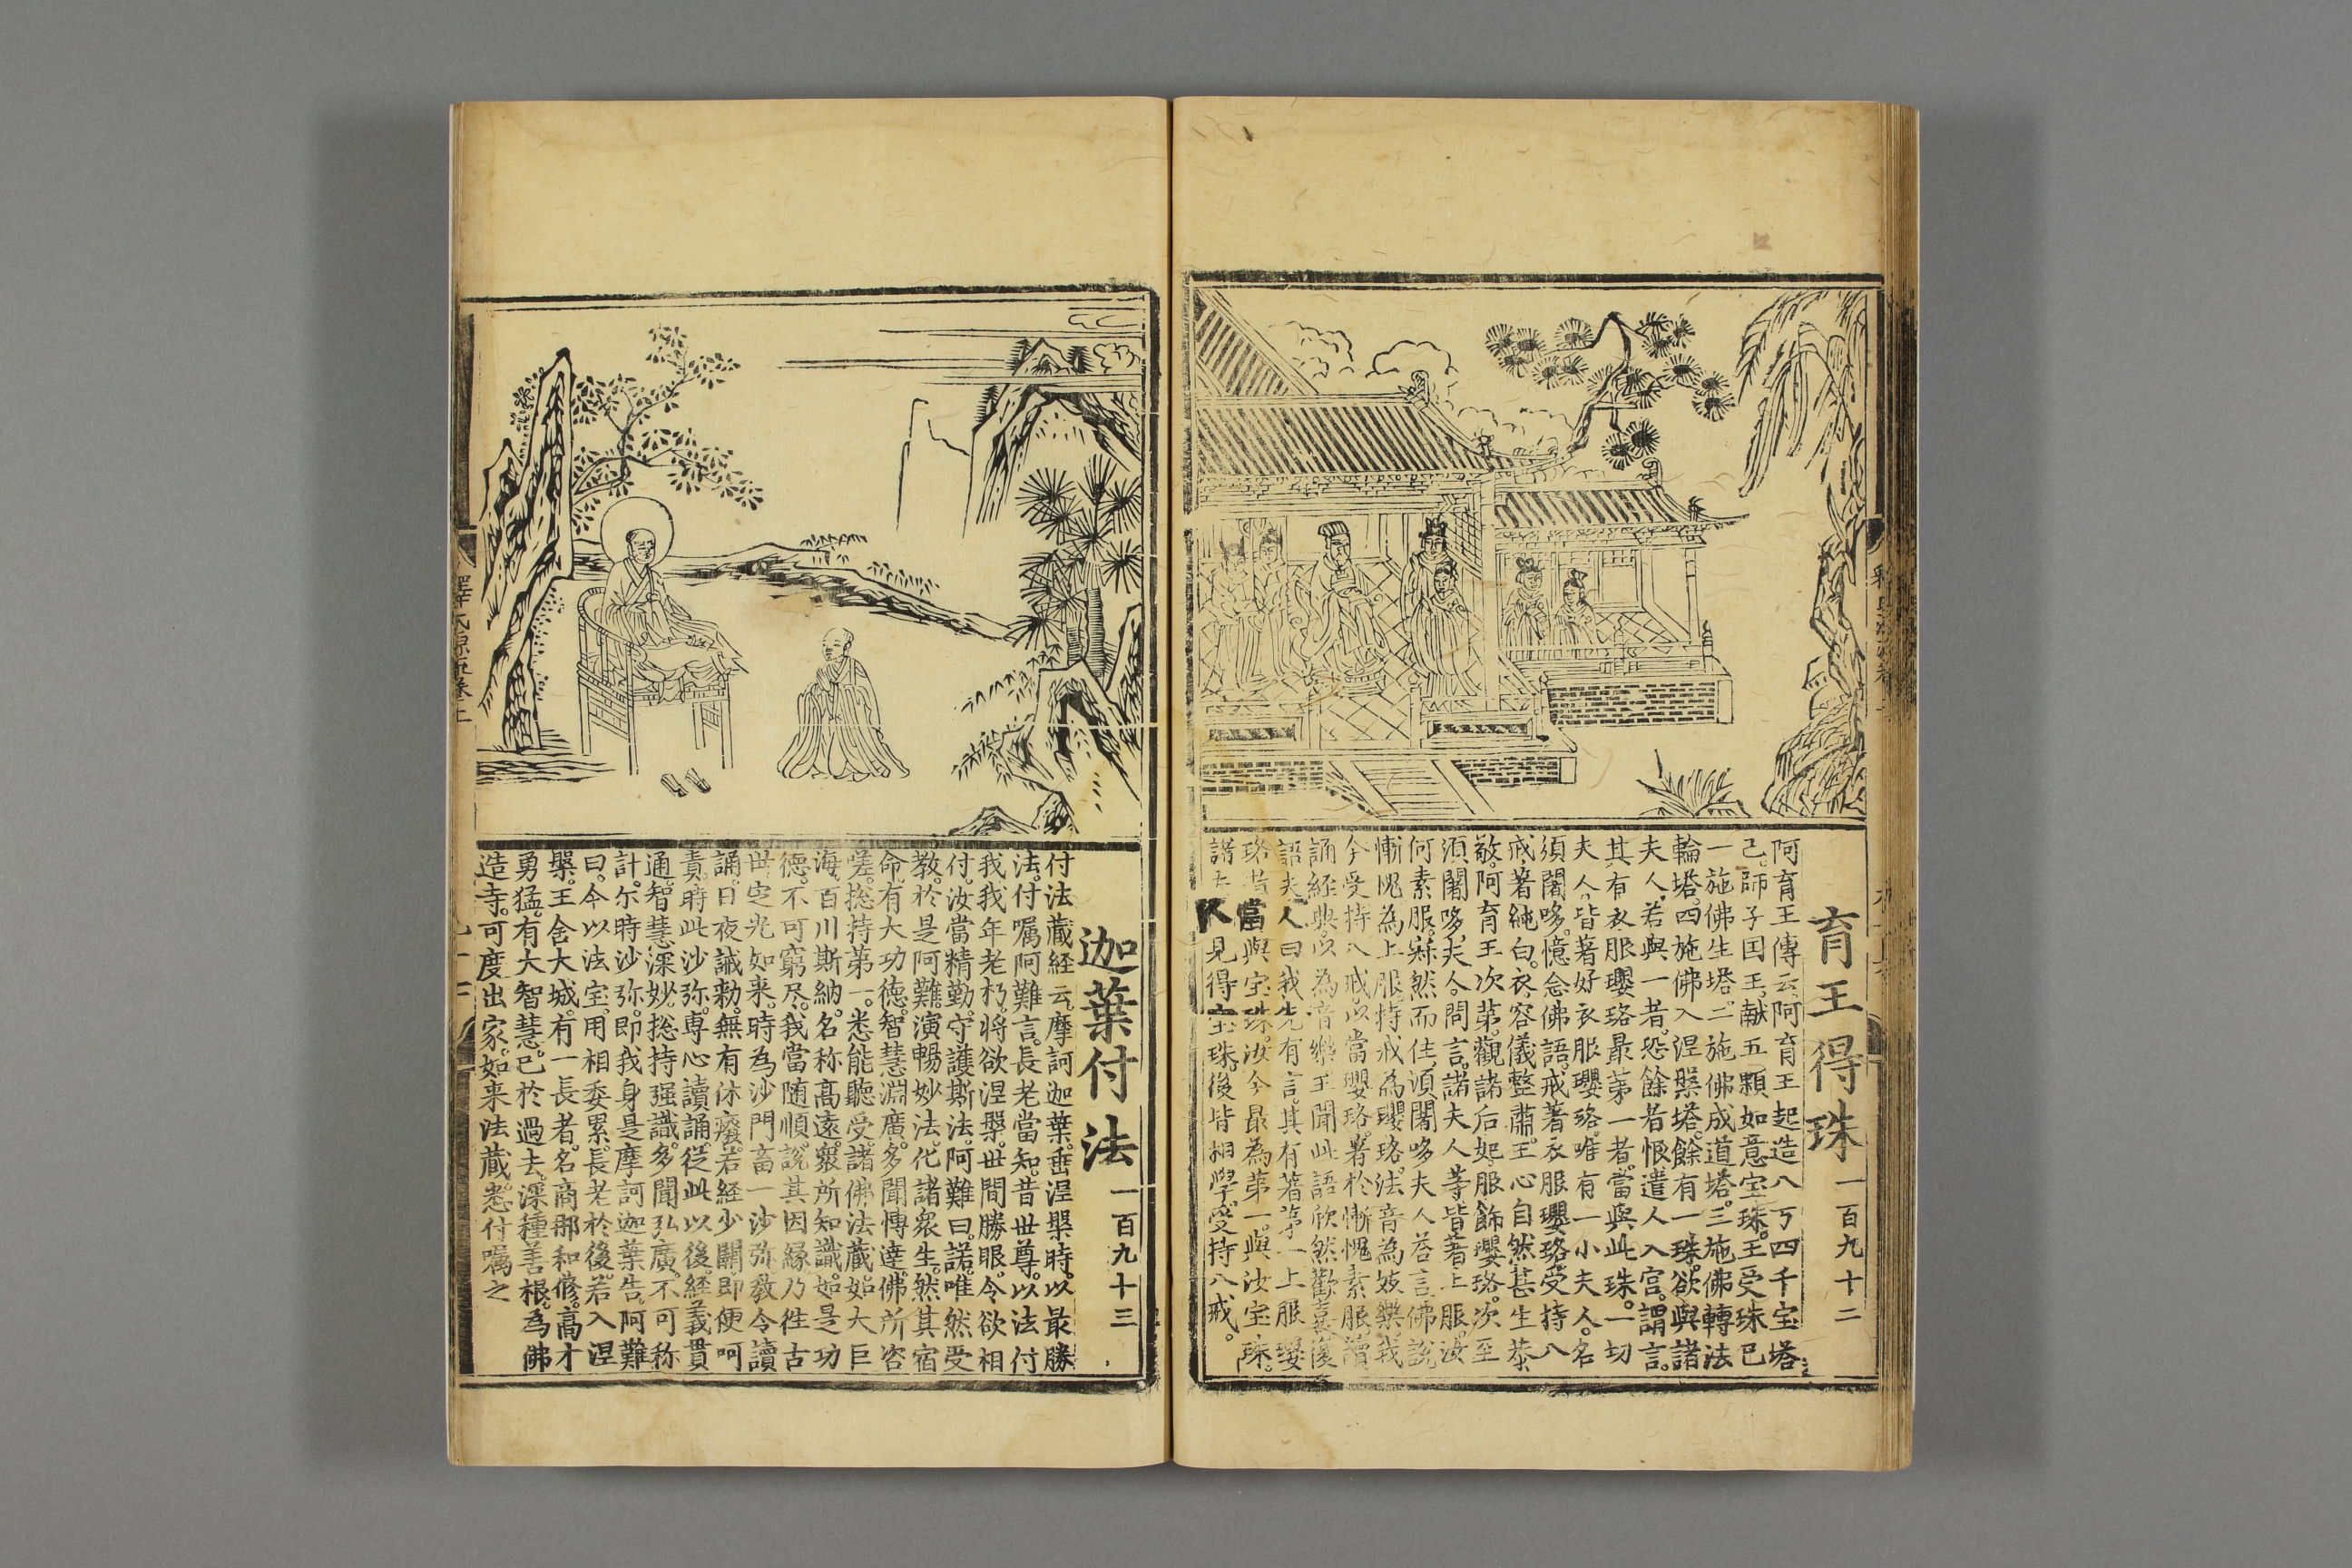 育王得珠 一百九十二
阿育王傳云阿育王起造八万四千宝塔
已師子囯王献五顆如意宝珠王受珠已
一施佛生塔二施佛成道塔三施佛轉法
輪塔四施佛入涅槃塔餘有一珠欲與諸
夫人若與一者恐餘者恨遣人入宮謂言
其有衣服瓔珞最苐一者當與此珠一切
夫人皆著好衣服瓔珞唯有一小夫人名
須闍哆憶念佛語戒著衣服瓔珞受持八
戒著純白衣容儀整肅王心自然甚生恭
敬阿育王次第觀諸后妃服飾瓔珞次至
須闍哆夫人問言諸夫人等皆著上服汝
何素服寂然而住須闍哆夫人荅言佛說
慚愧為上服持戒為瓔珞法音為妓樂我
今受持八戒以當瓔珞著於慚愧素服讀
誦經典以為音樂王聞此語欣然歡喜復
語夫人曰我先有言其有著苐一上服瓔
珞者當與宝珠汝今最為第一與汝宝珠
諸夫人見得宝珠後皆相學受持八戒。
迦葉付法 一百九十三
付法藏経云摩訶迦葉垂涅槃時以最勝
法付嘱阿難言長老當知昔世尊以法付
我我年老朽將欲涅槃世間勝眼今欲相
付汝當精勤守護斯法阿難曰諾唯然受
教於是阿難演暢妙法化諸衆生然其宿
命有大功德智慧淵廣多聞博達佛所咨
嗟総持第一悉能聽受諸佛法藏如大巨
海百川斯納名称高遠衆所知識如是功
德不可窮尽我當随順說其因縁乃徃古
世定光如来時為沙門畜一沙弥教令讀
誦日夜誡勅無有休廢若経少闕即便呵
責時此沙弥專心讀誦從此以後経義貫
通智慧深妙総持强識多聞弘廣不可称
計尒時沙弥即我身是摩訶迦葉告阿難
曰今以法宝用相委累長老於後若入涅
槃王舍大城有一長者名商那和修高才
勇猛有大智慧已於過去深種善根為佛
造寺可度出家如来法藏悉付嘱之
釋氏源流卷上